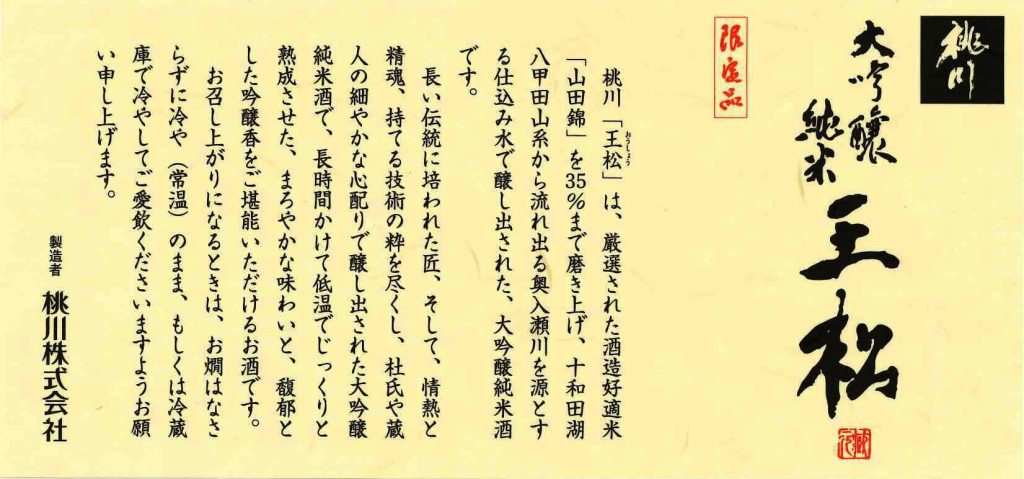 桃川
大吟醸
純米
王松
限定品
桃川「王松」は、厳選された酒造好適米
おうしょう
「山田錦」を35％まで磨き上げ、十和田湖
八甲田山系から流れ出る奥入瀬川を源とす
る仕込み水で醸し出された、大吟醸純米酒
です。
長い伝統に培われた匠、そして、情熱と
精魂、持てる技術の粋を尽くし、杜氏や蔵
人の細やかな心配りで醸し出された大吟醸
純米酒で、長時間かけて低温でじっくりと
熟成させた、まろやかな味わいと、馥郁と
した吟醸香をご堪能いただけるお酒です。
お召し上がりになるときは、お燗はなさ
らずに冷や（常温）のまま、もしくは冷蔵
庫で冷やしてご愛飲くださいますようお願
い申し上げます。
製造者 桃川株式会社